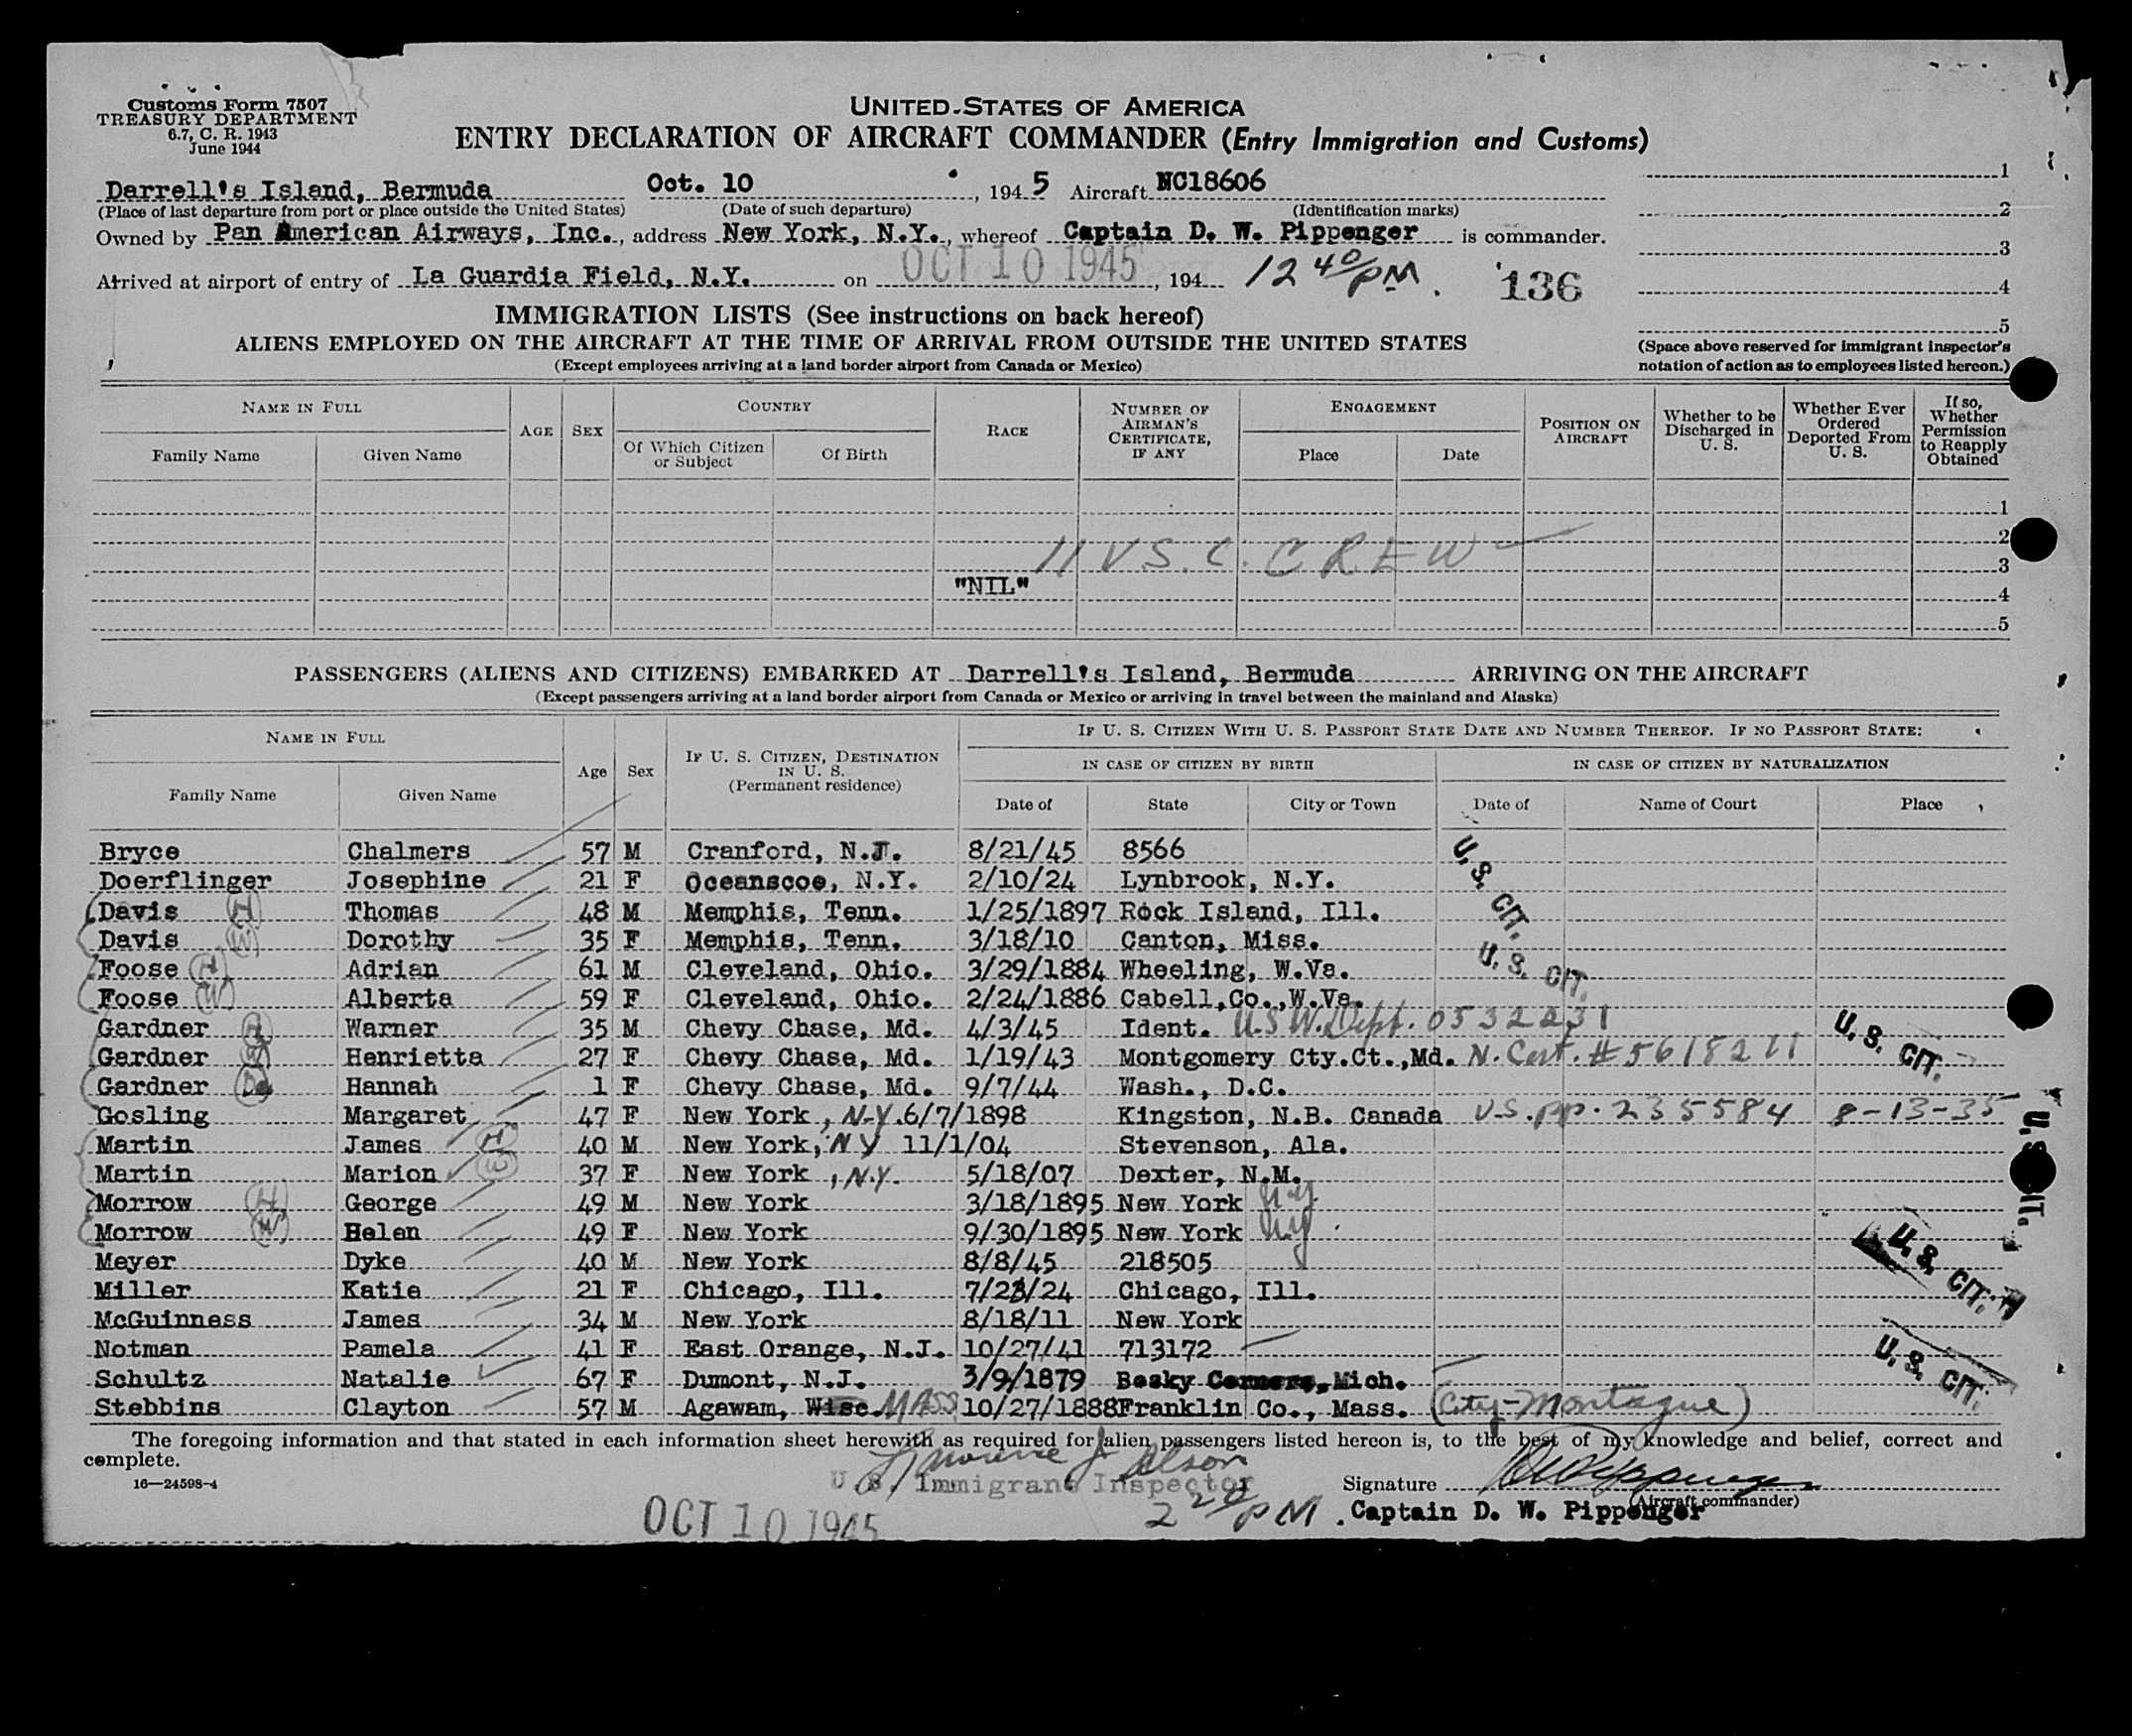 Customs Form 7507
TREASURY DEPARTMENT
6.7, C. R. 1943
June 1944
UNITED STATES OF AMERICA
ENTRY DECLARATION OF AIRCRAFT COMMANDER (Entry Immigration and Customs)
Darrell's Island, Bermuda Oct. 10, 1945 Aircraft NC18606
(Place of last departure from port or place outside the United States) (Date of such departure) (Identification marks)
Owned by Pan American Airways, Inc., address New York, N.Y., whereof Captain D. W. Pippenger is commander.
Arrived at airport of entry of La Guardia Field, N.Y. on OCT 10 1945, 194 12 40/PM. 136
1
2
3
4
5
(Space above reserved for immigrant inspector's
notation of action as to employees listed hereon.)
IMMIGRATION LISTS (See instructions on back hereof)
ALIENS EMPLOYED ON THE AIRCRAFT AT THE TIME OF ARRIVAL FROM OUTSIDE THE UNITED STATES
(Except employees arriving at a land border airport from Canada or Mexico)
NAME IN FULL
Family Name Given Name
AGE SEX
COUNTRY
Of Which Citizen or Subject Of Birth
RACE
NUMBER OF AIRMAN'S CERTIFICATE, IF ANY
ENGAGEMENT
Place Date
POSITION ON AIRCRAFT
Whether to be Discharged in U. S.
Whether Ever Ordered Deported From U. S.
If so, Whether Permission to Reapply Obtained
1
2
11 U.S.C. CREW
3
"NIL"
4
5
PASSENGERS (ALIENS AND CITIZENS) EMBARKED AT Darrell's Island, Bermuda ARRIVING ON THE AIRCRAFT
(Except passengers arriving at a land border airport from Canada or Mexico or arriving in travel between the mainland and Alaska)
NAME IN FULL
Family Name Given Name
Age Sex
IF U. S. CITIZEN, DESTINATION IN U. S.
(Permanent residence)
IF U. S. CITIZEN WITH U. S. PASSPORT STATE DATE AND NUMBER THEREOF. IF NO PASSPORT STATE:
IN CASE OF CITIZEN BY BIRTH IN CASE OF CITIZEN BY NATURALIZATION
Date of State City or Town Date of Name of Court Place
Bryce Chalmers 57 M Cranford, N.J. 8/21/45 8566
Doerflinger Josephine 21 F Oceanscoe, N.Y. 2/10/24 Lynbrook, N.Y.
Davis H Thomas 48 M Memphis, Tenn. 1/25/1897 Rock Island, Ill.
U. S. CIT.
Davis W Dorothy 35 F Memphis, Tenn. 3/18/10 Canton, Miss.
Foose H Adrian 61 M Cleveland, Ohio. 3/29/1884 Wheeling, W.Va.
U. S. CIT.
Foose W Alberta 59 F Cleveland, Ohio. 2/24/1886 Cabell,Co.,W.Va.
Gardner H Warner 35 M Chevy Chase, Md. 4/3/45 Ident. U.S W.Dept. 0532231
Gardner W Henrietta 27 F Chevy Chase, Md. 1/19/43 Montgomery Cty.Ct.,Md. N. Cert. #5618211
U. S. CIT.
Gardner Da Hannah 1 F Chevy Chase, Md. 9/7/44 Wash., D.C.
Gosling Margaret 47 F New York, N.Y. 6/7/1898 Kingston, N.B. Canada U.S. pp. 235584 8-13-35
Martin James H 40 M New York, NY 11/1/04 Stevenson, Ala.
Martin Marion W 37 F New York, N.Y. 5/18/07 Dexter, N.M.
Morrow H George 49 M New York 3/18/1895 New York N.Y.
Morrow W Helen 49 F New York 9/30/1895 New York N.Y.
Meyer Dyke 40 M New York 8/8/45 218505
U. S. CIT.
Miller Katie 21 F Chicago, Ill. 7/23/24 Chicago, Ill.
McGuinness James 34 M New York 8/18/11 New York
Notman Pamela 41 F East Orange, N.J. 10/27/41 713172
U. S. CIT.
Schultz Natalie 67 F Dumont, N.J. 3/9/1879 Corners, Mich.
Stebbins Clayton 57 M Agawam, Wisc. MASS 10/27/1888 Franklin Co., Mass. (City-Montague)
The foregoing information and that stated in each information sheet herewith as required for alien passengers listed hereon is, to the best of my knowledge and belief, correct and
complete.
16—24598-4
U. S. Immigrant Inspector
OCT 10 1945
2 20/PM.
Signature D W Pippenger
(Aircraft commander)
Captain D. W. Pippenger